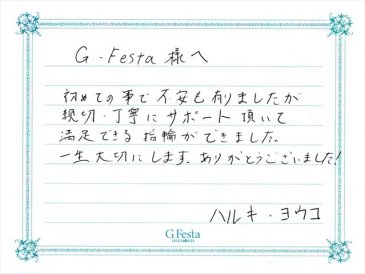 G.Festa 様へ
初めての事で不安も有りましたが
親切・丁寧にサポート頂いて
満足できる指輪ができました。
一生大切にします、ありがとうございました!
ハルキ・ヨウコ
G.Festa
DIAMOND